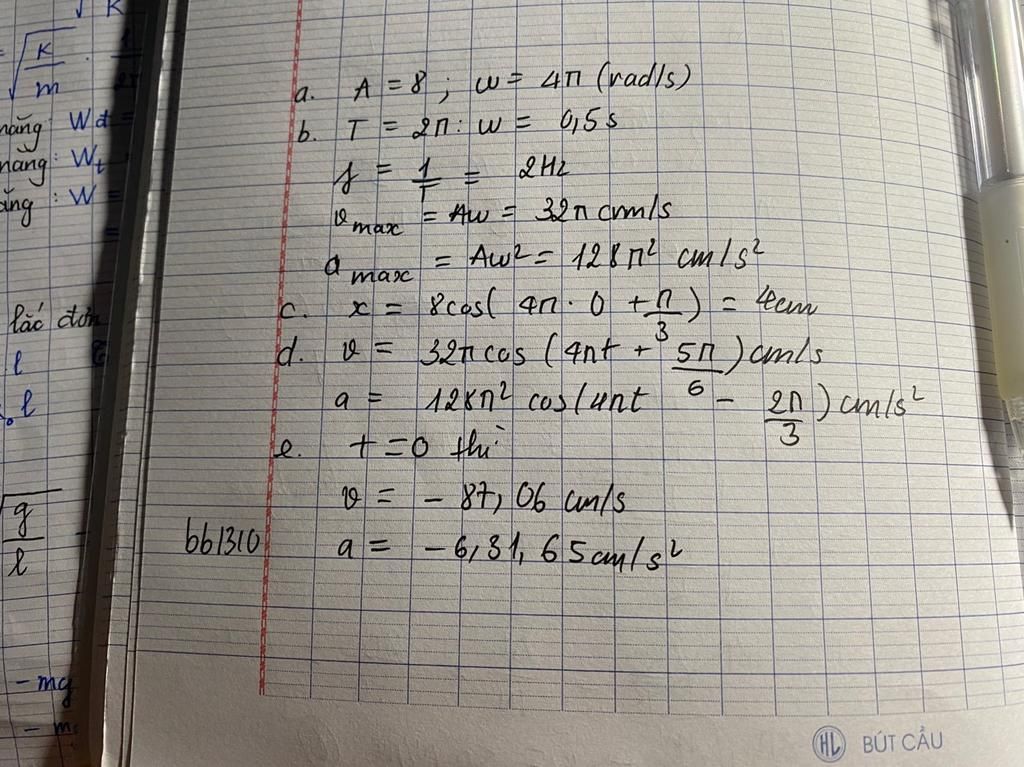 √K
= √K/m · 1/2π
năng: Wđ =
năng: Wt
ăng : W =
lắc đơn
l
l
√g/l
- mg
- m
a. A = 8 ; ω = 4π (rad/s)
b. T = 2π : ω = 0,5 s
f = 1/T = 2Hz
vmax = Aω = 32π cm/s
amax = Aω² = 128π² cm/s²
c. x = 8cos( 4π · 0 + π/3 ) = 4cm
d. v = 32π cos (4πt + 5π/6 ) cm/s
a = 128π² cos(4πt - 2π/3 ) cm/s²
e. t = 0 thì
v = - 87, 06 cm/s
bb1310 a = - 6,31, 65 cm/s²
HL BÚT CẦU